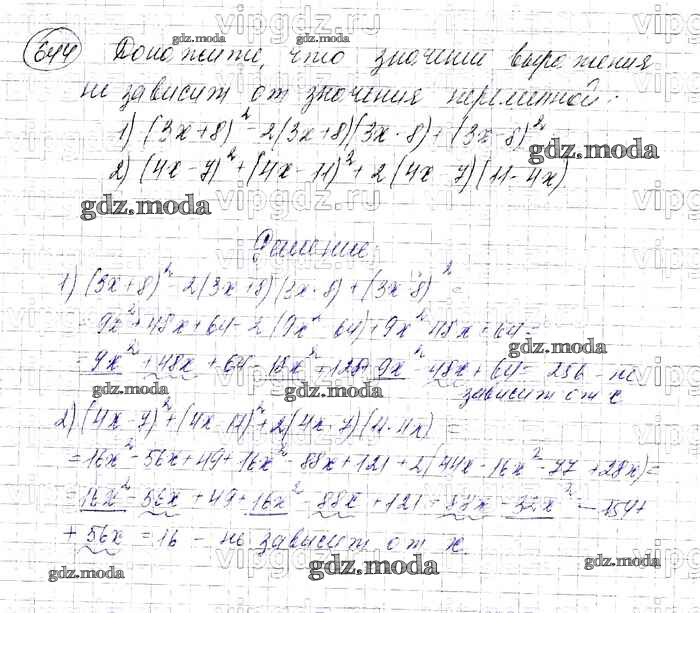 644 Докажите, что значение выражения
не зависит от значения переменной:
1) (3x+8)² - 2(3x+8)(3x-8) + (3x-8)²
2) (4x-7)² + (4x-11)² + 2(4x-7)(11-4x).
gdz.moda
Решение:
1) (3x+8)² - 2(3x+8)(3x-8) + (3x-8)² =
= 9x² + 48x + 64 - 2(9x² - 64) + 9x² - 48x + 64 =
= 9x² + 48x + 64 - 18x² + 128 + 9x² - 48x + 64 = 256 - не
зависит от x
2) (4x-7)² + (4x-11)² + 2(4x-7)(11-4x) =
= 16x² - 56x + 49 + 16x² - 88x + 121 + 2(44x - 16x² - 77 + 28x) =
= 16x² - 56x + 49 + 16x² - 88x + 121 + 88x - 32x² - 154 +
+ 56x = 16 - не зависит от x.
gdz.moda